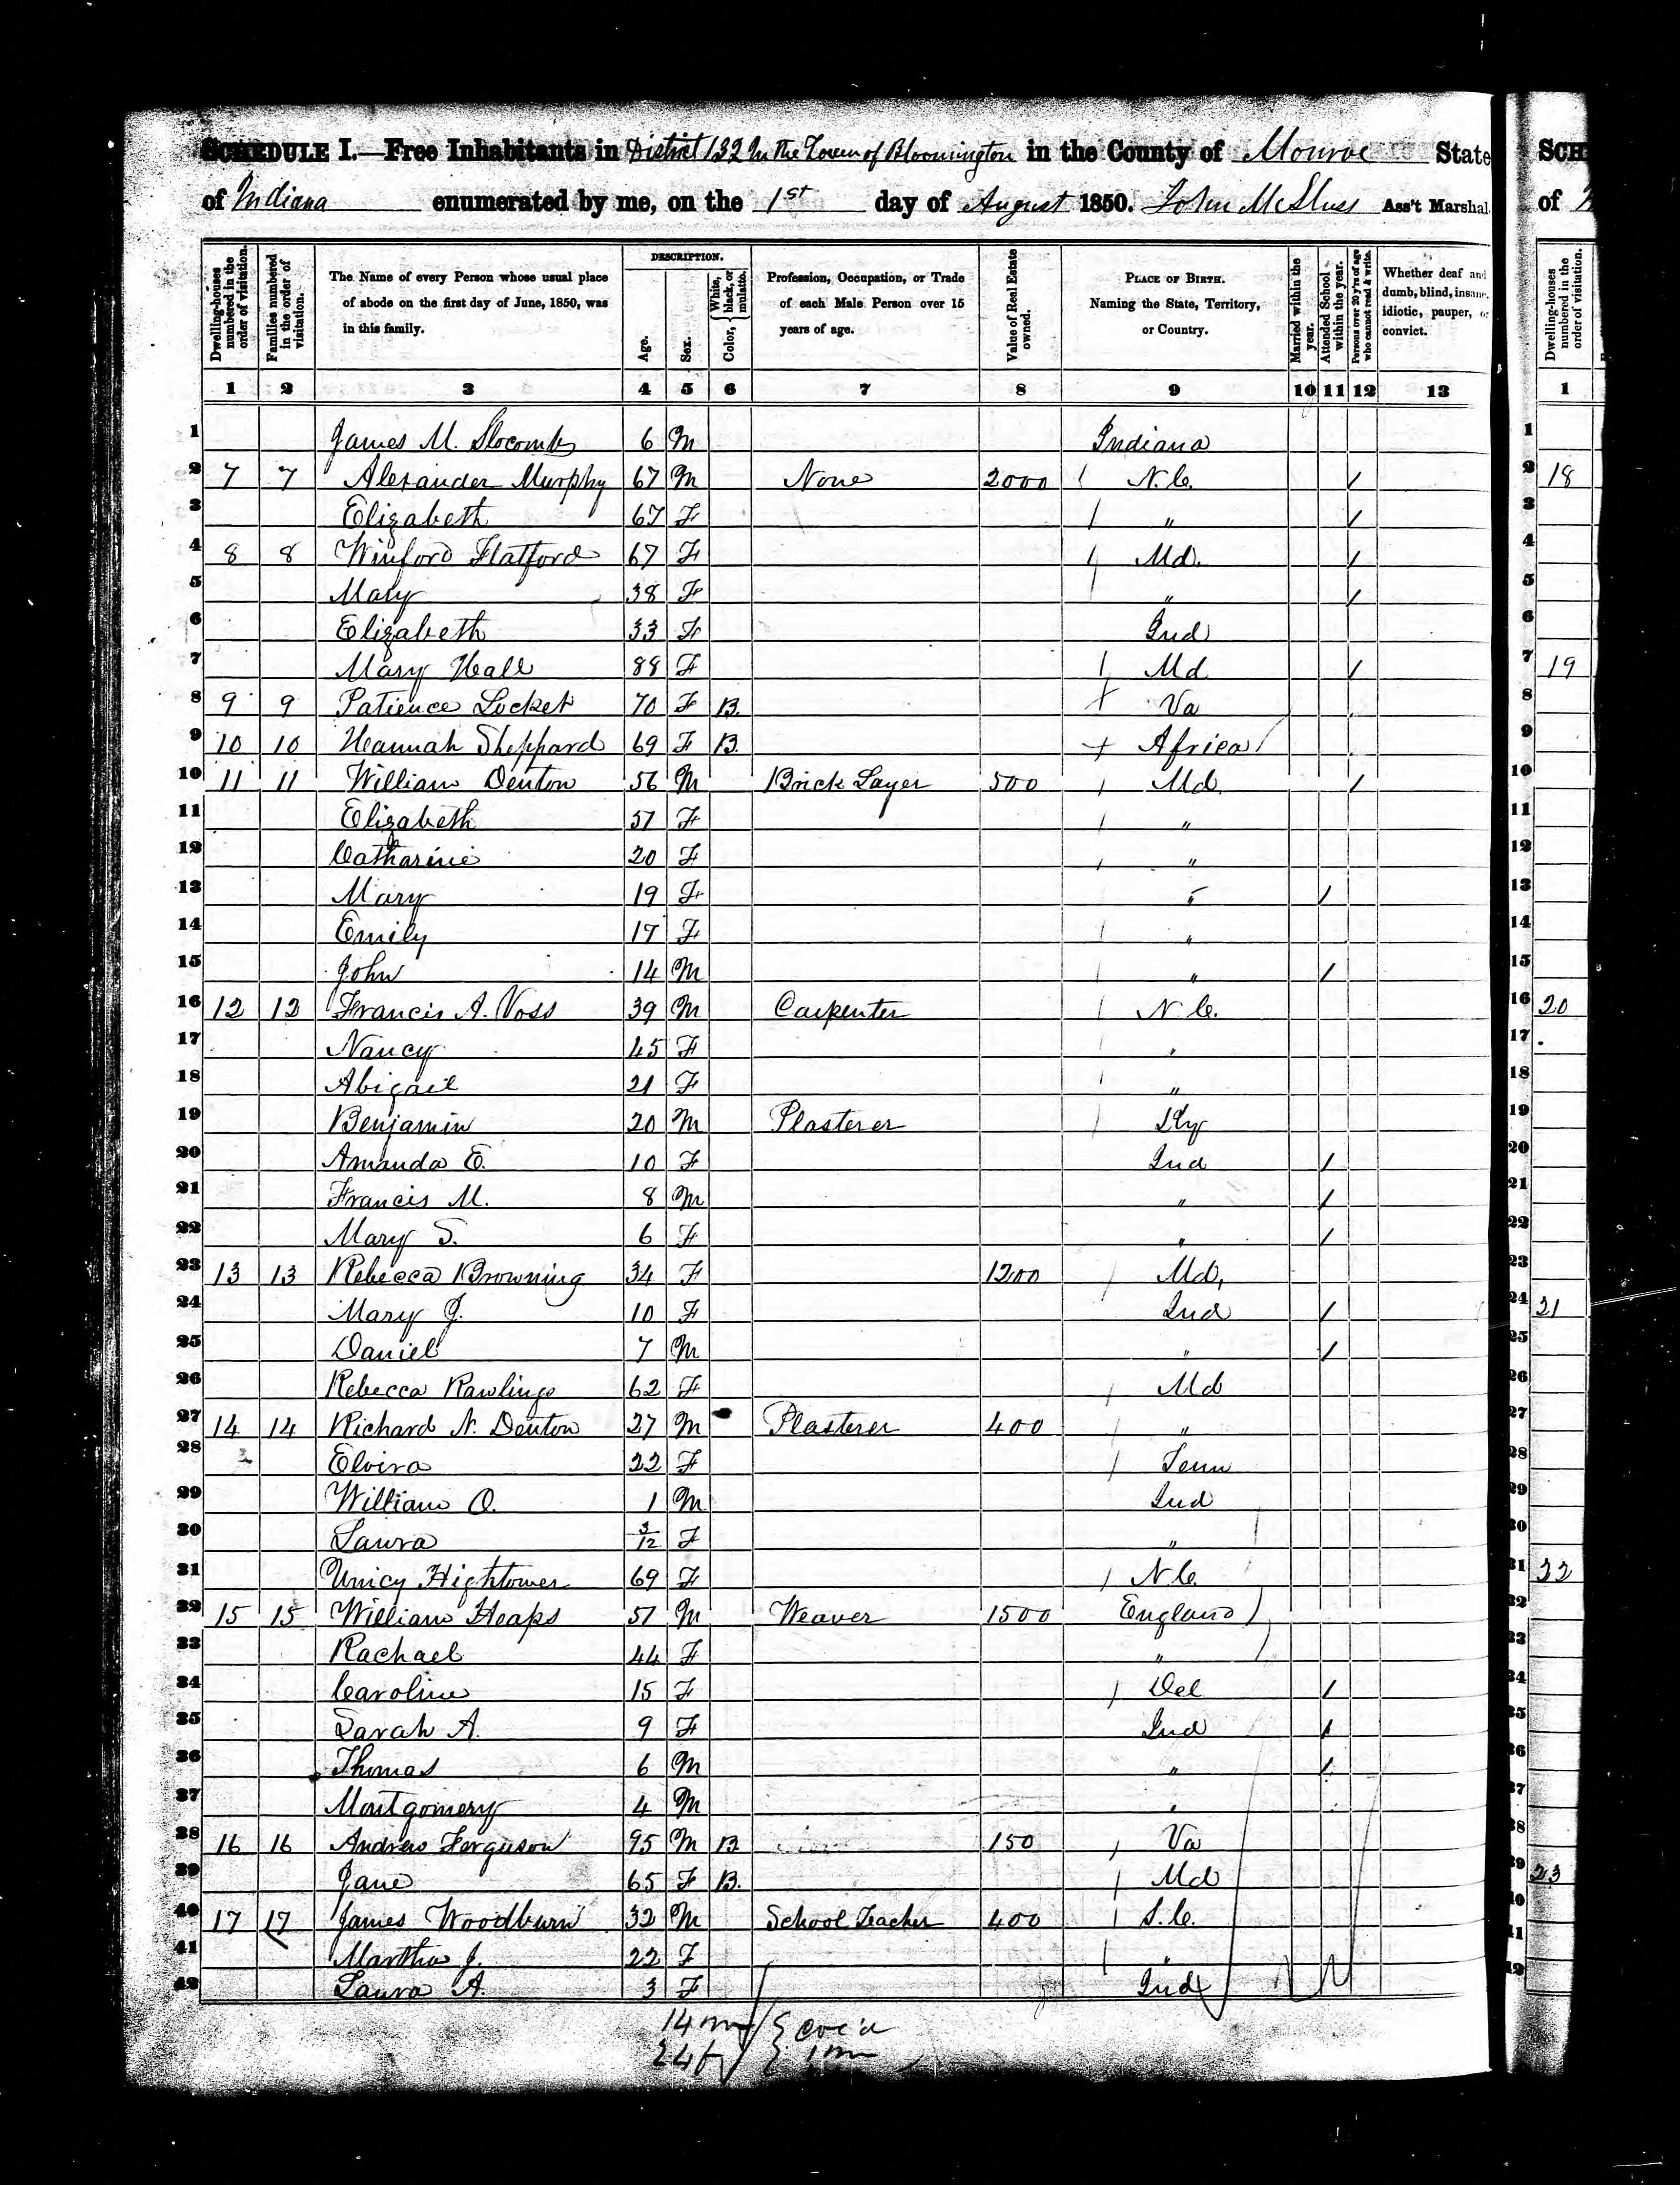 SCHEDULE I.—Free Inhabitants in District 132 In the Town of Bloomington in the County of Monroe State
of Indiana enumerated by me, on the 1st day of August 1850. John McSluss Ass't Marshal.
Dwelling-houses numbered in the order of visitation.
Families numbered in the order of visitation.
The Name of every Person whose usual place of abode on the first day of June, 1850, was in this family.
DESCRIPTION.
Age.
Sex.
Color, { White, black, or mulatto.
Profession, Occupation, or Trade of each Male Person over 15 years of age.
Value of Real Estate owned.
PLACE OF BIRTH. Naming the State, Territory, or Country.
Married within the year.
Attended School within the year.
Persons over 20 y'rs of age who cannot read & write.
Whether deaf and dumb, blind, insane, idiotic, pauper, or convict.
1 2 3 4 5 6 7 8 9 10 11 12 13
1 James M. Slocomb 6 M Indiana
2 7 7 Alexander Murphy 67 M None 2000 / N.C. /
3 Elizabeth 67 F / " /
4 8 8 Winford Flatford 67 F / Md. /
5 Mary 38 F / " /
6 Elizabeth 33 F Ind
7 Mary Hall 88 F / Md /
8 9 9 Patience Locket 70 F B. + Va
9 10 10 Hannah Sheppard 69 F B. + Africa /
10 11 11 William Denton 56 M Brick Layer 500 / Md. /
11 Elizabeth 57 F / "
12 Catharine 20 F / "
13 Mary 19 F " /
14 Emily 17 F / "
15 John 14 M / " /
16 12 12 Francis A. Voss 39 M Carpenter / N.C.
17 Nancy 45 F / "
18 Abigail 21 F / "
19 Benjamin 20 M Plasterer / Ky
20 Amanda E. 10 F Ind /
21 Francis M. 8 M " /
22 Mary S. 6 F " /
23 13 13 Rebecca Browning 34 F 1200 / Md.
24 Mary J. 10 F Ind /
25 Daniel 7 M " /
26 Rebecca Rawlings 62 F / Md
27 14 14 Richard N. Denton 27 M Plasterer 400 / "
28 Elvira 22 F / Tenn
29 William O. 1 M Ind
30 Laura 3/12 F "
31 Unicy Hightower 69 F / N.C.
32 15 15 William Heaps 51 M Weaver 1500 England /
33 Rachael 44 F " /
34 Caroline 15 F / Del /
35 Sarah A. 9 F Ind /
36 Thomas 6 M " /
37 Montgomery 4 M "
38 16 16 Andrew Ferguson 95 M B. 150 / Va
39 Jane 65 F B. / Md
40 17 17 James Woodburn 32 M School Teacher 400 / S.C.
41 Martha J. 22 F / "
42 Laura A. 3 F Ind
14 m
24 f
SCH
of
Dwelling-houses numbered in the order of visitation.
1
1
2 18
3
4
5
6
7 19
8
9
10
11
12
13
14
15
16 20
17
18
19
20
21
22
23
24 21
25
26
27
28
29
30
31 22
32
33
34
35
36
37
38
39 23
40
41
42